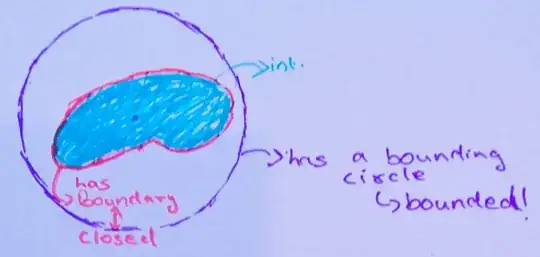 int.
has a bounding
circle
bounded!
has
boundary
closed